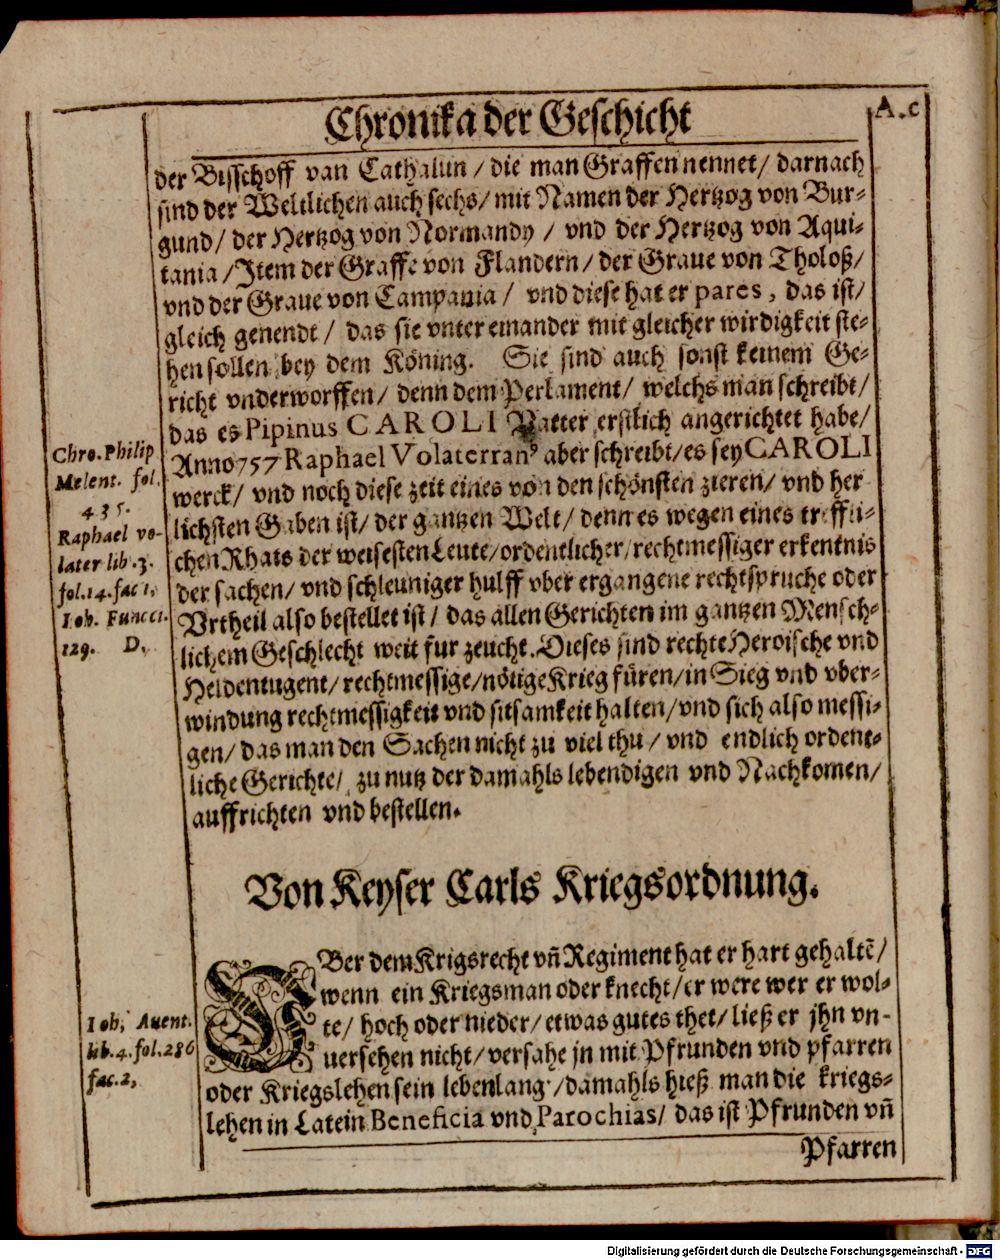 Chronika der Geschicht
A.c
der Bisschoff van Cathalun / die man Graffen nennet / darnach
sind der Weltlichen auch sechs / mit Namen der Hertzog von Bur-
gund / der Hertzog von Normandy / vnd der Hertzog von Aqui-
tania / Item der Graffe von Flandern / der Graue von Tholoß /
vnd der Graue von Campania / vnd diese hat er pares, das ist /
gleich genendt / das sie vnter einander mit gleicher wirdigkeit ste-
hen sollen bey dem Köning. Sie sind auch sonst keinem Ge-
richt vnderworffen / denn dem Perlament / welchs man schreibt /
das es Pipinus CAROLI Vatter erstlich angerichtet habe /
Anno 757 Raphael Volaterranꝰ aber schreibt / es sey CAROLI
werck / vnd noch diese zeit eines von den schönsten zieren / vnd her
lichsten Gaben ist / der gantzen Welt / denn es wegen eines treffli-
chen Rhats der weisesten Leute / ordentlicher / rechtmessiger erkentnis
der sachen / vnd schleuniger hulff vber ergangene rechtspruche oder
Vrtheil also bestellet ist / das allen Gerichten im gantzen Mensch-
lichem Geschlecht weit fur zeucht. Dieses sind rechte Heroische vnd
Heldentugent / rechtmessige / nötige Krieg füren / in Sieg vnd vber-
windung rechtmessigkeit vnd sitsamkeit halten / vnd sich also messi-
gen / das man den Sachen nicht zu viel thu / vnd endlich ordent-
liche Gerichte / zu nutz der damahls lebendigen vnd Nachkomen /
auffrichten vnd bestellen.
Chro. Philip
Melent. fol.
435.
Raphael vo-
later lib. 3.
fol. 14. fac 1,
Ioh. Funcci.
129. D,
Von Keyser Carls Kriegsordnung.
VBer dem Krigsrecht vñ Regiment hat er hart gehaltẽ /
wenn ein Kriegsman oder knecht / er were wer er wol-
te / hoch oder nieder / etwas gutes thet / ließ er jhn vn-
uersehen nicht / versahe jn mit Pfrunden vnd pfarren
oder Kriegslehen sein lebenlang / damahls hieß man die kriegs-
lehen in Latein Beneficia vnd Parochias / das ist Pfrunden vñ
Pfarren
Ioh, Auent.
lib. 4. fol. 286
fac. 2,
Digitalisierung gefördert durch die Deutsche Forschungsgemeinschaft - DFG